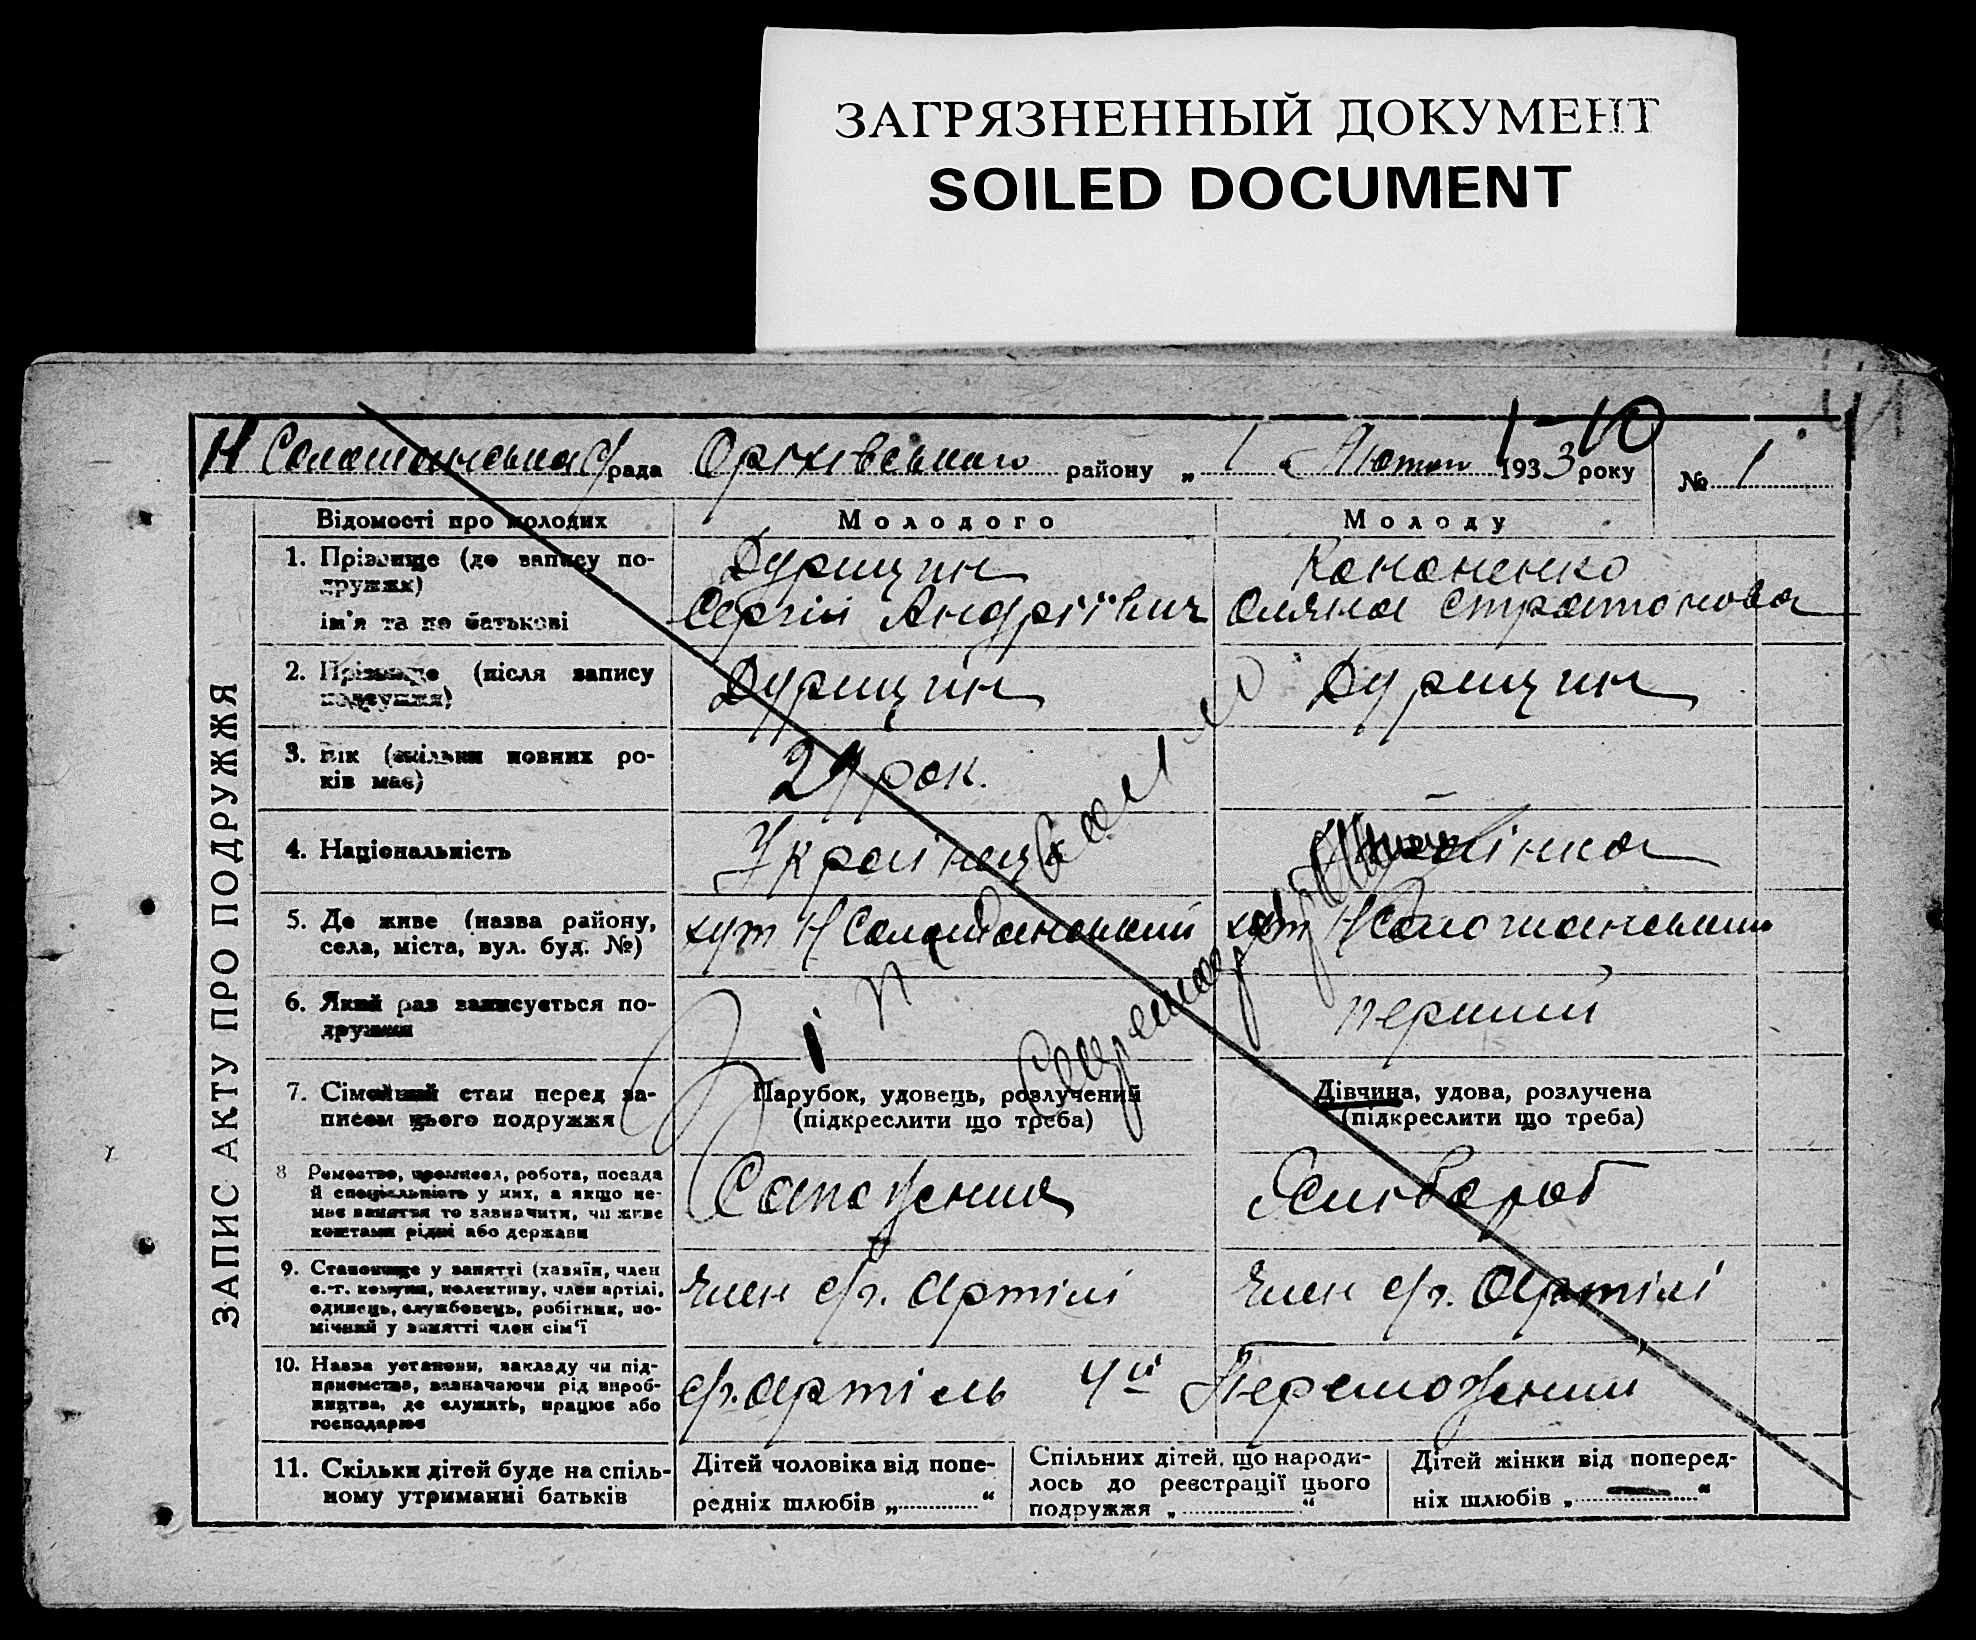 ЗАГРЯЗНЕННЫЙ ДОКУМЕНТ
SOILED DOCUMENT
1-10
рада Оріхівського району „ 1 “ Лютого 1933 року № 1
ЗАПИС АКТУ ПРО ПОДРУЖЖЯ
Відомості про молодих Молодого Молоду
1. Прізвище (до запису по-
дружжя)
Дурицин Кононенко
ім'я та по батькові Сергій Андрійович Страто нова
2. Прізвище (після запису
подружжя)
Дурицин Дурицин
3. Вік (скільки повних ро-
ків має)
рок.
4. Національність Українець
5. Де живе (назва району,
села, міста, вул. буд. №)
хут хут
6. Який раз записується по-
дружжя
перший
7. Сімейний стан перед за-
писом цього подружжя
Парубок, удовець, розлучений
(підкреслити що треба)
Дівчина, удова, розлучена
(підкреслити що треба)
8 Ремество, промисел, робота, посада
й спеціальність у них, а якщо не-
має заняття то зазначити, чи живе
коштами рідні або держави
9. Становище у занятті (хазяїн, член
с.-г. комуни, колективу, член артілі,
одинець, службовець, робітник, по-
мічний у занятті член сім'ї
член с/г. артілі член с/г. Артілі
10. Назва установи, закладу чи під-
приємства, зазначаючи рід вироб-
ництва, де служить, працює або
господарює
с/г. артіль
11. Скільки дітей буде на спіль-
ному утриманні батьків
Дітей чоловіка від попе-
редніх шлюбів „ “
Спільних дітей, що народи-
лось до реєстрації цього
подружжя „ “
Дітей жінки від поперед-
ніх шлюбів „ — “